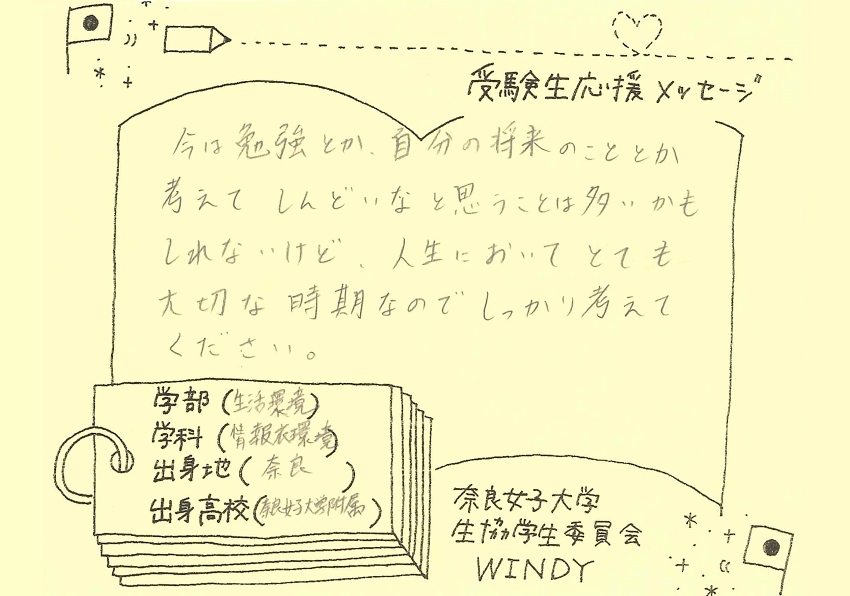 受験生応援メッセージ
今は勉強とか、自分の将来のこととか
考えて しんどいなと思うことは多いかも
しれないけど、人生において とても
大切な時期なのでしっかり考えて
ください。
学部(生活環境)
学科(情報衣環境)
出身地(奈良)
出身高校(奈良女子大学附属)
奈良女子大学
生協学生委員会
WINDY